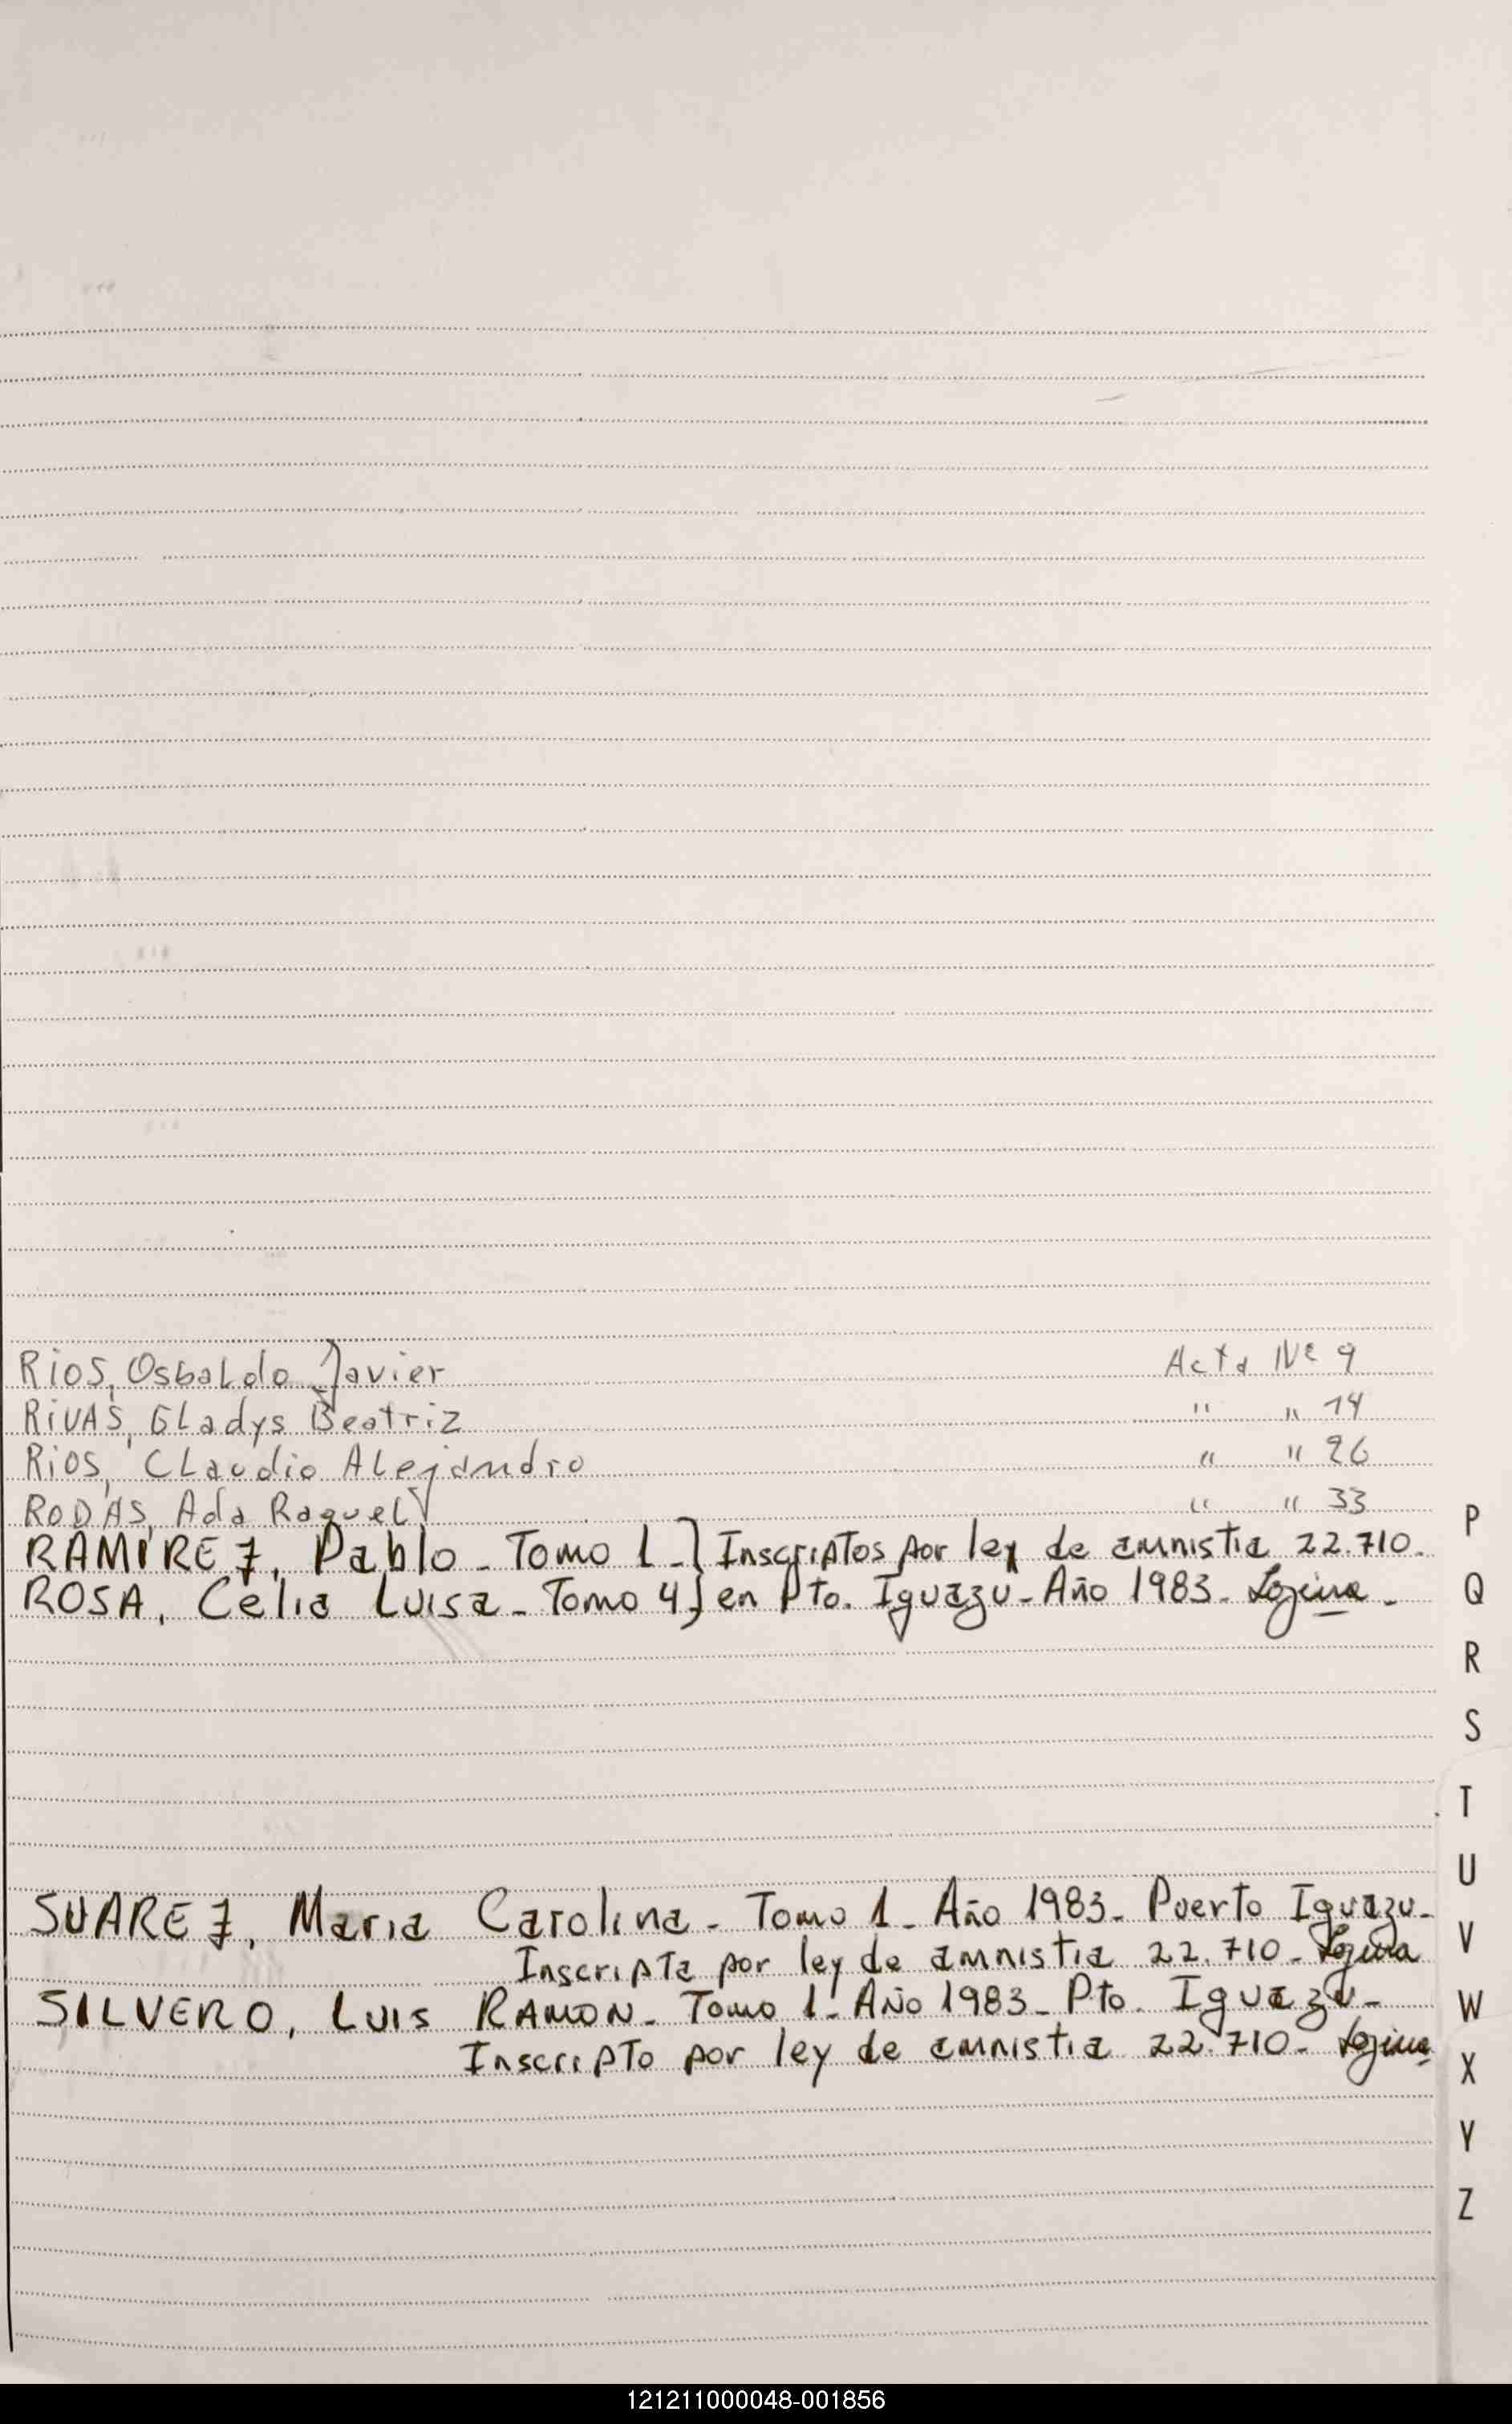 RIOS, Osbaldo Javier Acta Nº 9
RIVAS, Gladys Beatriz " " 14
RIOS, Claudio Alejandro " " 26
RODAS, Ada Raquel " " 33
RAMIREZ, Pablo - Tomo 1 - ] Inscriptos por ley de amnistia 22.710.
ROSA, Celia Luisa - Tomo 4 ] en Pto. Iguazu - Año 1983.
SUAREZ, Maria Carolina - Tomo 1 - Año 1983 - Puerto Iguazu -
Inscripta por ley de amnistia 22.710 -
SILVERO, Luis RAMON - Tomo 1 - Año 1983 - Pto. Iguazu -
Inscripto por ley de amnistia 22.710 -
P
Q
R
S
T
U
V
W
X
Y
Z
121211000048-001856